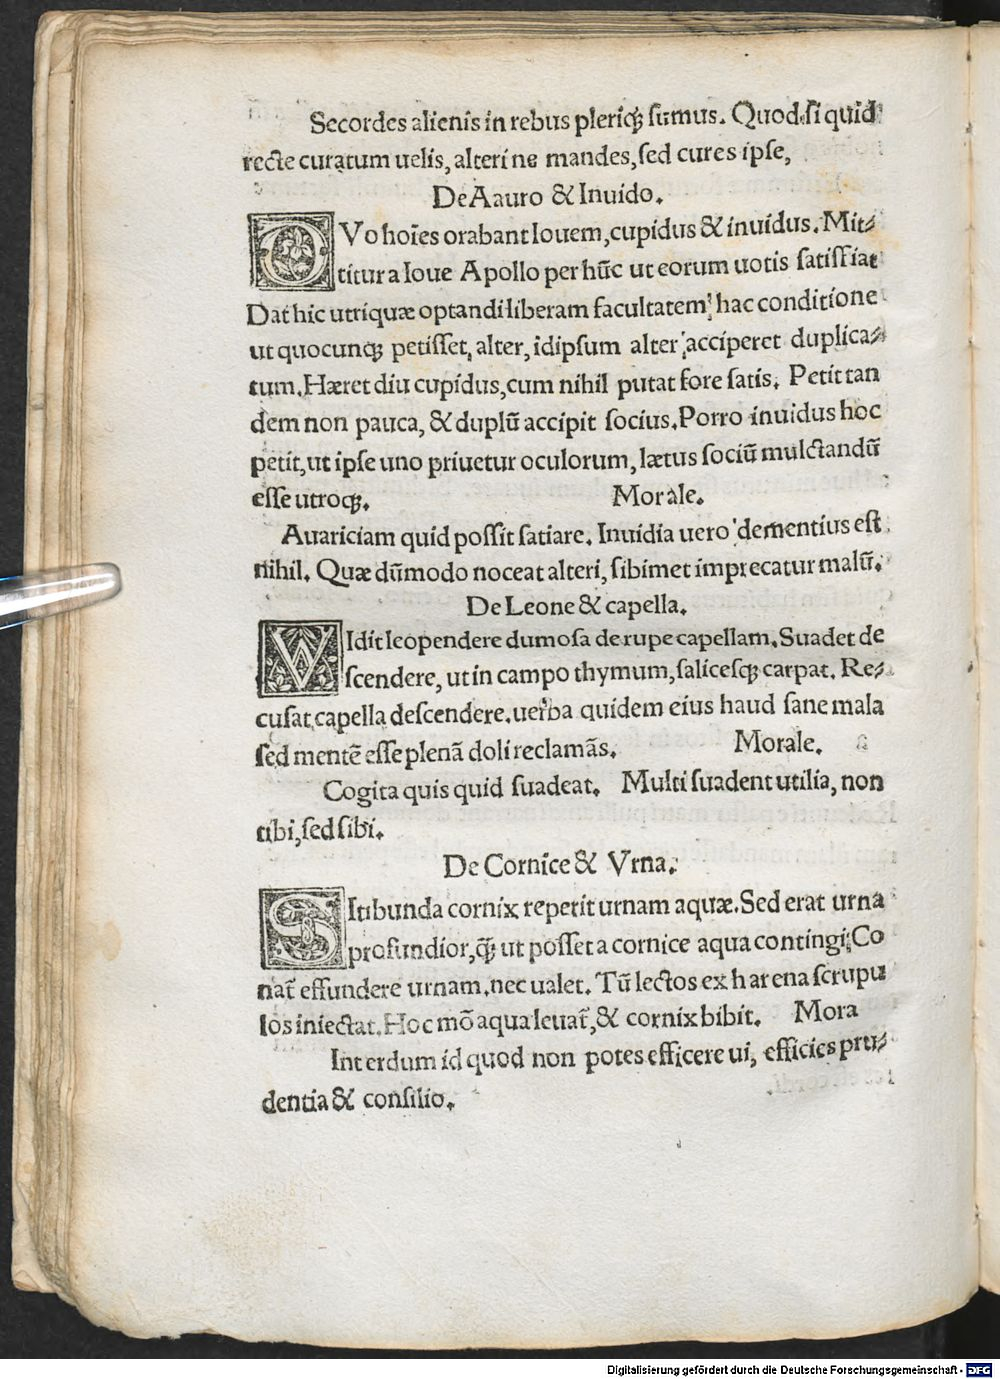 Secordes alienis in rebus pleriqꝫ sumus. Quod si quid
recte curatum uelis, alteri ne mandes, sed cures ipse,
De Aauro & Inuido.
DVo hoīes orabant Iouem, cupidus & inuidus. Mit⸗
titur a Ioue Apollo per hūc ut eorum uotis satisfiat
Dat hic utriquæ optandi liberam facultatem, hac conditione
ut quocunqꝫ petisset, alter, idipsum alter acciperet duplica⸗
tum. Hæret diu cupidus, cum nihil putat fore satis. Petit tan
dem non pauca, & duplū accipit socius. Porro inuidus hoc
petit, ut ipse uno priuetur oculorum, lætus sociū mulctandū
esse utroqꝫ. Morale.
Auariciam quid possit satiare. Inuidia uero dementius est
nihil. Quæ dūmodo noceat alteri, sibimet imprecatur malū.
De Leone & capella.
VIdit leo pendere dumosa de rupe capellam. Suadet de
scendere, ut in campo thymum, salicesqꝫ carpat. Re⸗
cusat capella descendere. uerba quidem eius haud sane mala
sed mentē esse plenā doli reclamās. Morale.
Cogita quis quid suadeat. Multi suadent utilia, non
tibi, sed sibi.
De Cornice & Vrna.
SItibunda cornix reperit urnam aquæ. Sed erat urna
profundior, qꝫ ut posset a cornice aqua contingi, Co
nat̄ effundere urnam. nec ualet. Tū lectos ex harena scrupu
los iniectat. Hoc mō aqua leuat̄, & cornix bibit. Mora
Interdum id quod non potes efficere ui, efficies pru⸗
dentia & consilio.
Digitalisierung gefördert durch die Deutsche Forschungsgemeinschaft - DFG